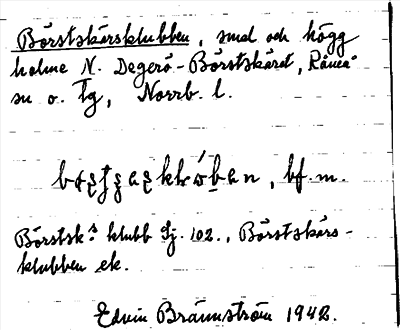 Börstskärsklubben, smal och högg
holme N. Degerö-Börstskäret, Råneå
sn o. Tg, Norrb. l.
bf. m.
Börstsk:s klubb Sj. 102., Börstskärs-
klubben ek.
Edvin Brännström 1942.